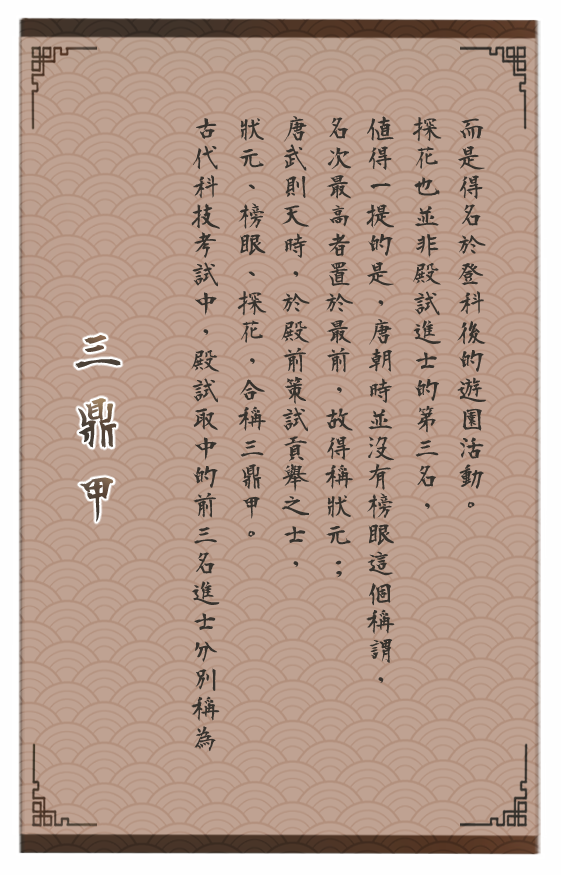 三鼎甲
古代科技考試中，殿試取中的前三名進士分別稱為
狀元、榜眼、探花，合稱三鼎甲。
唐武則天時，於殿前策試貢舉之士，
名次最高者置於最前，故得稱狀元；
值得一提的是，唐朝時並沒有榜眼這個稱謂，
探花也並非殿試進士的第三名，
而是得名於登科後的遊園活動。